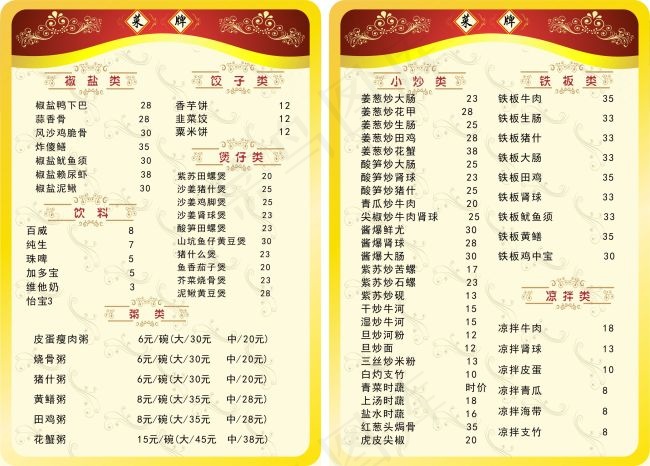 菜牌
椒盐类
椒盐鸭下巴 28
蒜香骨 28
风沙鸡脆骨 30
炸傻鳝 35
椒盐鱿鱼须 30
椒盐赖尿虾 38
椒盐泥鳅 30
饮料
百威 8
纯生 7
珠啤 5
加多宝 5
维他奶 3
怡宝3
饺子类
香芋饼 12
韭菜饺 12
粟米饼 12
煲仔类
紫苏田螺煲 20
沙姜猪什煲 25
沙姜鸡脚煲 25
沙姜肾球煲 23
酸笋田螺煲 23
山坑鱼仔黄豆煲 30
猪什么煲 23
鱼香茄子煲 20
芥菜烧骨煲 23
泥鳅黄豆煲 28
粥类
皮蛋瘦肉粥 6元/碗(大/30元 中/20元)
烧骨粥 6元/碗(大/30元 中/20元)
猪什粥 6元/碗(大/30元 中/20元)
黄鳝粥 8元/碗(大/35元 中/28元)
田鸡粥 8元/碗(大/35元 中/28元)
花蟹粥 15元/碗(大/45元 中/38元)
菜牌
小炒类
姜葱炒大肠 23
姜葱炒花甲 28
姜葱炒生肠 25
姜葱炒田鸡 28
姜葱炒花蟹 38
酸笋炒大肠 25
酸笋炒肾球 23
酸笋炒猪什 25
青瓜炒牛肉 20
尖椒炒牛肉肾球 25
酱爆鲜尤 30
酱爆肾球 28
酱爆大肠 30
紫苏炒苦螺 17
紫苏炒石螺 23
紫苏炒砚 13
干炒牛河 13
湿炒牛河 15
旦炒河粉 12
旦炒面 12
三丝炒米粉 13
白灼支竹 10
青菜时蔬 时价
上汤时蔬 18
盐水时蔬 16
红葱头焗骨 35
虎皮尖椒 20
铁板类
铁板牛肉 35
铁板生肠 33
铁板猪什 33
铁板大肠 33
铁板田鸡 35
铁板肾球 33
铁板鱿鱼须 33
铁板黄鳝 35
铁板鸡中宝 30
凉拌类
凉拌牛肉 18
凉拌肾球 13
凉拌皮蛋 10
凉拌青瓜 8
凉拌海带 8
凉拌支竹 8